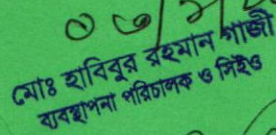 মোঃ হাবিবুর রহমান গাজী
ব্যবস্থাপনা পরিচালক ও সিইও